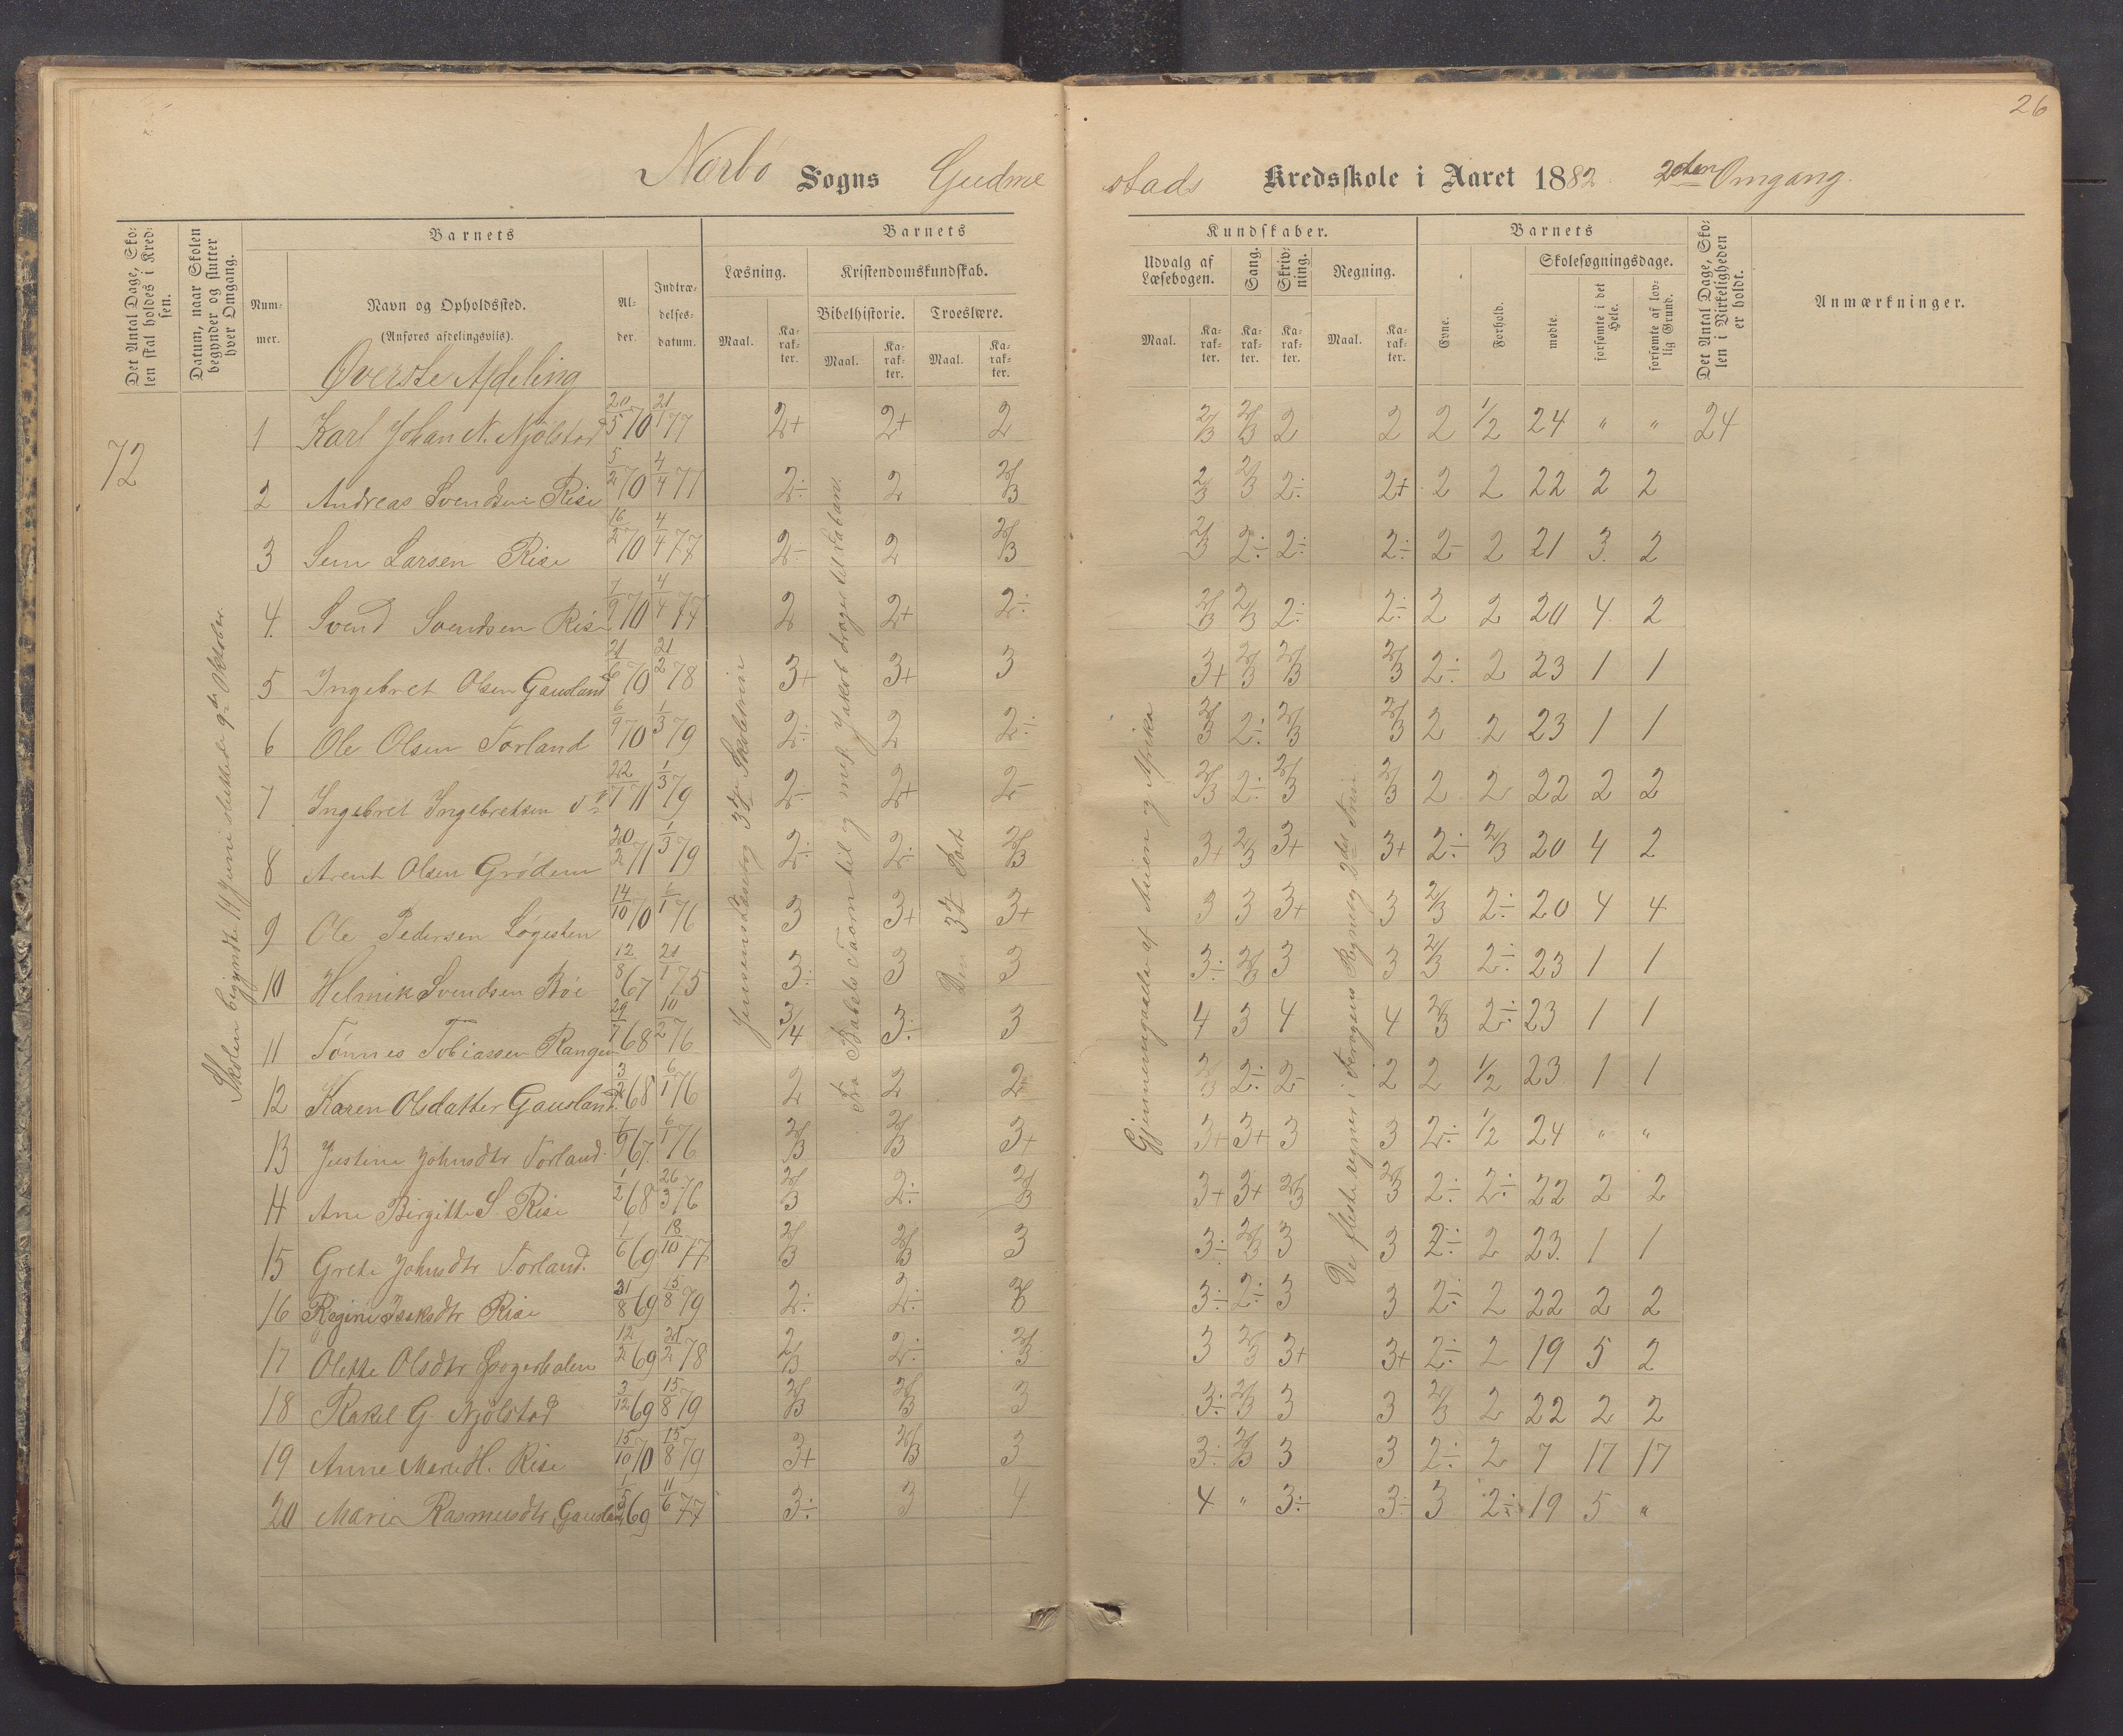 26
Nærbø Sogns Gudme
stads Kredsskole i Aaret 1882 2den Omgang.
Det Antal Dage, Skolen skal holdes i Kredsen.
Datum, naar Skolen begynder og slutter hver Omgang.
Barnets
Nummer.
Navn og Opholdssted.
(Anføres afdelingsviis).
Alder.
Indtrædelsesdatum.
Barnets
Læsning.
Kristendomskundskab.
Bibelhistorie. Troeslære.
Maal. Karakter. Maal. Karakter. Maal. Karakter.
Kundskaber.
Udvalg af Læsebogen. Sang. Skrivning. Regning.
Maal. Karakter. Karakter. Karakter. Maal. Karakter.
Barnets
Evne. Forhold.
Skolesøgningsdage.
mødte. forsømte i det Hele. forsømte af lovlig Grund.
Det Antal Dage, Skolen i Virkeligheden er holdt.
Anmærkninger.
Øverste Afdeling
72
Skolen begyndte 19 Juni sluttede 9de Oktober.
Jensens Læsebog 3die Skoletrin
Fra Babels Taarn til og med Jakob drager til Laban.
Den 3die Part
Gjennemgaaet af Asien og Afrika
De fleste regner i Foragens Regnebog 2det Trin.
1 Karl Johan N. Njølstad 20/5 70 21/1 77 2+ 2+ 2 2/3 2/3 2 2 2 1/2 24 " " 24
2 Andreas Svendsen Rise 5/2 70 4/4 77 2÷ 2 2/3 2/3 2/3 2÷ 2+ 2 2 22 2 2
3 Sem Larsen Rise 16/2 70 4/4 77 2÷ 2 2/3 2/3 2÷ 2÷ 2÷ 2- 2 21 3. 2
4. Svend Svendsen Rise 7/9 70 4/4 77 2 2+ 2÷ 2/3 2/3 2÷ 2÷ 2 2 20 4 2
5 Ingebret Olsen Gausland 21/6 70 21/2 78 3+ 3+ 3 3+ 2/3 2/3 2/3 2÷ 2 23 1 1
6 Ole Olsen Torland 6/9 70 1/3 79 2÷ 2 2÷ 2/3 2÷ 2/3 2/3 2 2 23 1 1
7 Ingebret Ingebretsen do 22/1 71 1/3 79 2÷ 2+ 2- 2/3 2÷ 2/3 2/3 2 2 22 2 2
8 Arent Olsen Grødem 20/2 71 1/3 79 2÷ 2÷ 2/3 3+ 2/3 3+ 3+ 2÷ 2/3 20 4 2
9 Ole Pedersen Løgesten 14/10 70 6/1 76 3 3+ 3+ 3 3 3+ 3 2/3 2÷ 20 4 4
10 Helmik Svendsen Bøe 12/8 67 21/1 75 3÷ 3 3 3÷ 2/3 3 3 2/3 2÷ 23 1 1
11 Tønnes Tobiassen Rangen 29/1 68 10/2 76 3/4 3÷ 3 4 3 4 4 2/3 2÷ 23 1 1
12 Karen Olsdatter Gausland 3/2 68 6/1 76 2 2 2 2/3 2÷ 2- 2 2 1/2 23 1 1
13 Justine Johnsdtr Torland. 7/9 67. 6/1 76 2/3 2/3 3+ 3+ 3+ 3 3 2÷ 1/2 24 " "
14 Ane Birgitte S. Rise 1/2 68 26/3 76 2/3 2÷ 2/3 3+ 3+ 2/3 2/3 2÷ 2÷ 22 2 2
15 Grete Johnsdtr Torland. 1/6 69 18/10 77 2/3 2/3 3 3÷ 2/3 3 3 2÷ 2 23. 1 1
16 Regine Isaksdtr Rise 31/8 69 15/8 79 2÷ 2÷ 2/3 3÷ 2÷ 3 3 2÷ 2 22 2 2
17 Olette Olsdtr 12/2 69 21/2 78 2/3 2÷ 2/3 3 2/3 3+ 3+ 2÷ 2 19 5 2
18 Rakel G. Njølstad 3/12 69 15/8 79 2/3 2/3 3 3÷ 2/3 3 3 2/3 2 22 2 2
19 Anne Marie H. Rise 15/10 70 15/8 79 3+ 2/3 3 3÷ 2/3 3 3 2÷ 2 7 17 17
20 Maria Rasmusdtr Gausland 1/5 69 11/6 77 3÷ 3 4 4 " 3÷ 3÷ 3 2÷ 19 5 "